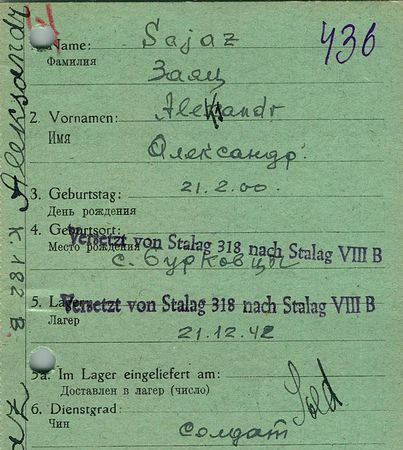 1. Name: Sajaz 436
Фамилия Заяц
2. Vornamen: Aleksandr
Имя Олександр.
3. Geburtstag: 21.2.00.
День рождения
4. Geburtsort:
Versetzt von Stalag 318 nach Stalag VIII B
Место рождения с. Бурковцы
5. Lager:
Versetzt von Stalag 318 nach Stalag VIII B
Лагерь 21.12.42
5a. Im Lager eingeliefert am:
Доставлен в лагерь (число)
6. Dienstgrad: Sold
Чин солдат
Aleksandr
К. 182 В